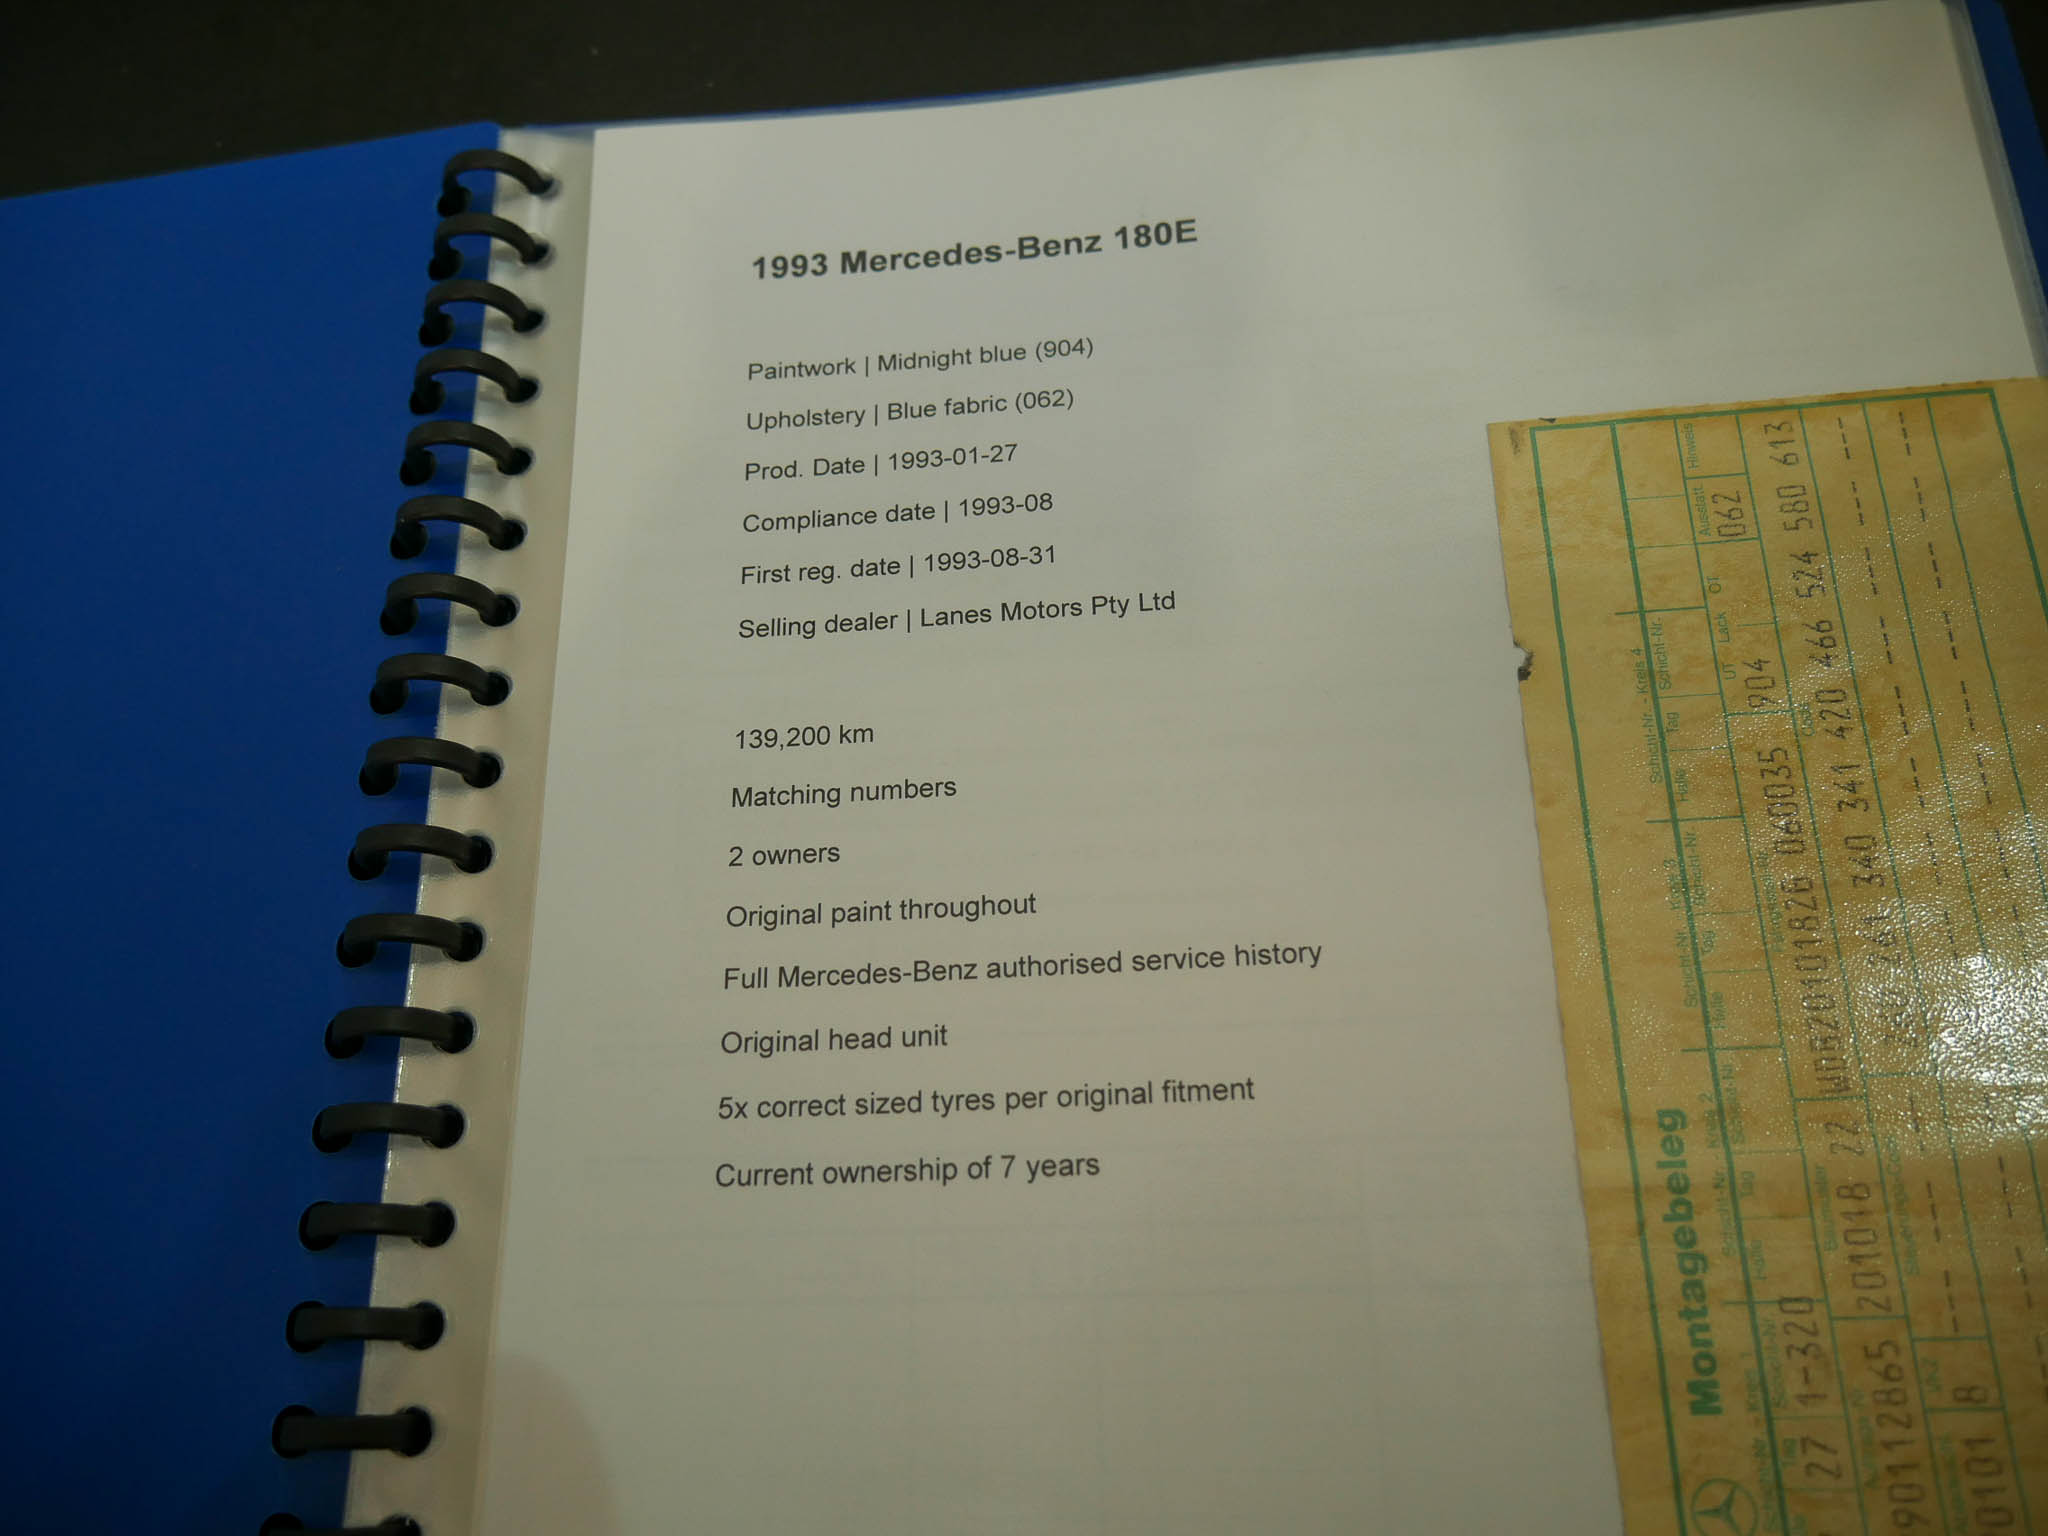 1993 Mercedes-Benz 180E
Paintwork | Midnight blue (904)
Upholstery | Blue fabric (062)
Prod. Date | 1993-01-27
Compliance date | 1993-08
First reg. date | 1993-08-31
Selling dealer | Lanes Motors Pty Ltd
139,200 km
Matching numbers
2 owners
Original paint throughout
Full Mercedes-Benz authorised service history
Original head unit
5x correct sized tyres per original fitment
Current ownership of 7 years
Montagebeleg
Schicht-Nr. - Kreis 4
Tag Schicht-Nr.
UT Lack OT Ausstatt Hinweis
27 1-320 904 062
Baumuster
201018 22
Code
340 341 420 466 524 580 613